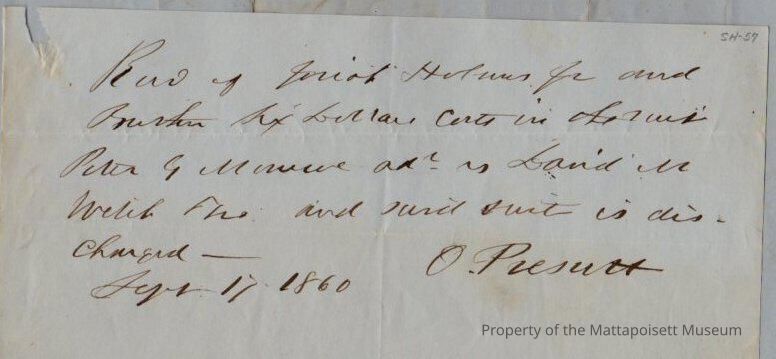 SH-57
Recd of Josiah Holmes Jr and
Brother Six Dollars Costs in the suit
Peter G Monroe adr vs David M
Welch Tre. and said suit is dis-
charged —
O. Prescott
Sept. 17. 1860
Property of the Mattapoisett Museum